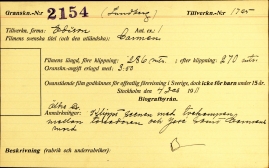 Granskn.-N:r 2154 (Lundberg) Tillverkn. N:r
Tillverkn. firma: Edison Ant. ex. 1
Filmens svenska titel (och den utländska): Carmen
Filmens längd, före klippning: 286 mtr.; efter klippning: 270 mtr.
Granskn.-avgift erlagd med: 3.00
Ovanstående film godkännes för offentlig förevisning i Sverige, dock icke för barn under 15 år.
Stockholm den 7 Dec 1911
Biografbyrån.
Anmärkningar: scenen med
och José samt Carmens
mord
Beskrivning (rubrik och underrubriker)